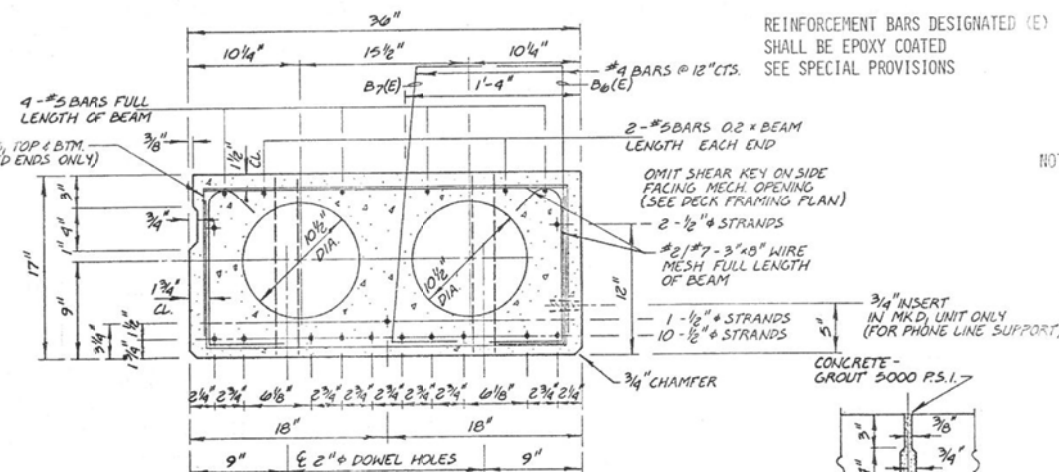 36"
REINFORCEMENT BARS DESIGNATED (E)
SHALL BE EPOXY COATED
SEE SPECIAL PROVISIONS
10 1/4" 15 1/2" 10 1/4"
#4 BARS @ 12" CTS.
B7(E) 1'-4" B6(E)
4-#5 BARS FULL
LENGTH OF BEAM
TOP & BTM.
D ENDS ONLY)
3/8"
1 1/2" CL.
2-#5 BARS 0.2 x BEAM
LENGTH EACH END
OMIT SHEAR KEY ON SIDE
FACING MECH. OPENING
(SEE DECK FRAMING PLAN)
2-1/2"φ STRANDS
#2/#7-3"x8" WIRE
MESH FULL LENGTH
OF BEAM
17"
3"
4"
1"
9"
3/4"
1 3/4"
CL.
10 1/2"
DIA.
10 1/2"
DIA.
12"
1-1/2"φ STRANDS
10-1/2"φ STRANDS
5"
3/4" INSERT
IN MK D, UNIT ONLY
(FOR PHONE LINE SUPPORT)
3 1/4"
1 1/2"
1 3/4"
3/4" CHAMFER
CONCRETE-
GROUT 5000 P.S.I.
2 1/4" 2 3/4" 6 1/8" 2 3/4" 2 3/4" 2 3/4" 2 3/4" 2 3/4" 6 1/8" 2 3/4" 2 1/4"
18" 18"
9" ℄ 2"φ DOWEL HOLES 9"
3"
3/8"
3/4"